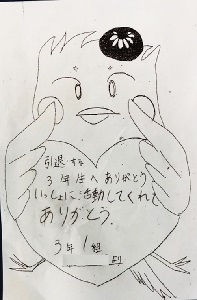 引退する
3年生へありがとう
いっしょに活動してくれて
ありがとう。
3年 1組
より